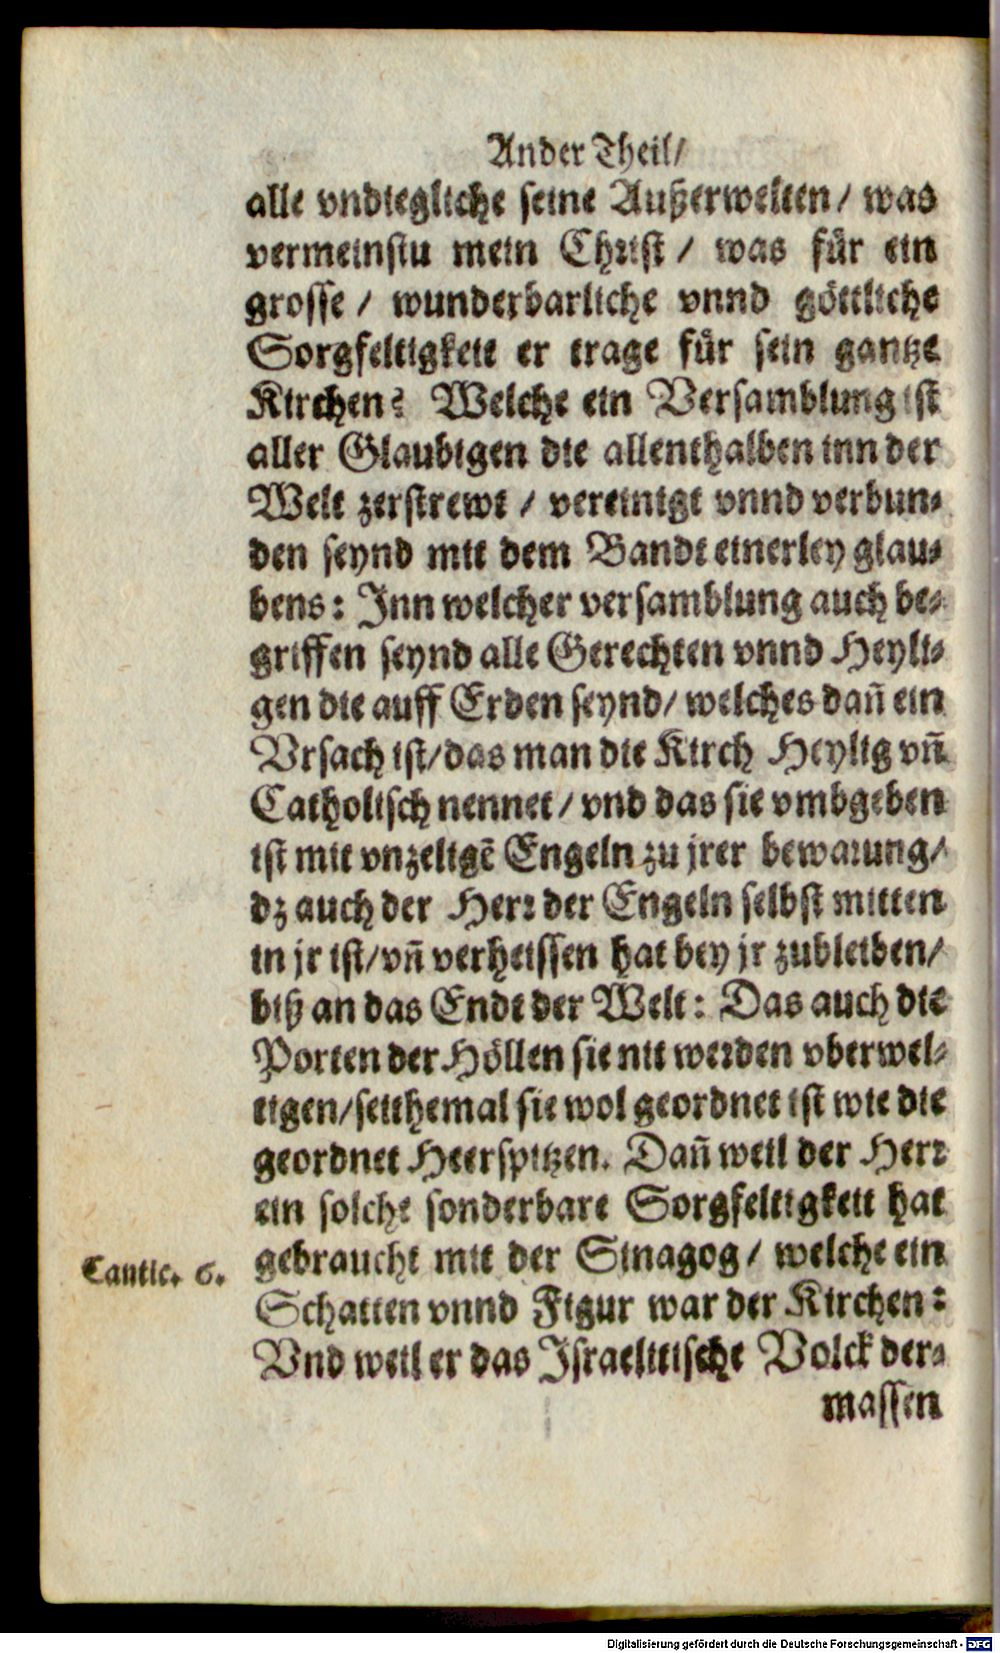 Ander Theil/
alle vndiegliche seine Außerwelten/ was
vermeinstu mein Christ / was für ein
grosse / wunderbarliche vnnd göttliche
Sorgfeltigkeit er trage für sein gantze
Kirchen? Welche ein Versamblung ist
aller Glaubigen die allenthalben inn der
Welt zerstrewt / vereinigt vnnd verbun-
den seynd mit dem Bandt einerley glau-
bens: Inn welcher versamblung auch be-
griffen seynd alle Gerechten vnnd Heyli-
gen die auff Erden seynd/ welches dañ ein
Vrsach ist/das man die Kirch Heylig vñ
Catholisch nennet/ vnd das sie vmbgeben
ist mit vnzeligẽ Engeln zu jrer bewarung/
dz auch der Herr der Engeln selbst mitten
in jr ist/vñ verheissen hat bey jr zubleiben/
biß an das Ende der Welt: Das auch die
Porten der Höllen sie nit werden vberwel-
tigen/seithemal sie wol geordnet ist wie die
geordnet Heerspitzen. Dañ weil der Herr
ein solche sonderbare Sorgfeltigkeit hat
gebraucht mit der Sinagog/ welche ein
Cantic. 6.
Schatten vnnd Figur war der Kirchen:
Vnd weil er das Israelitische Volck der-
massen
Digitalisierung gefördert durch die Deutsche Forschungsgemeinschaft - DFG